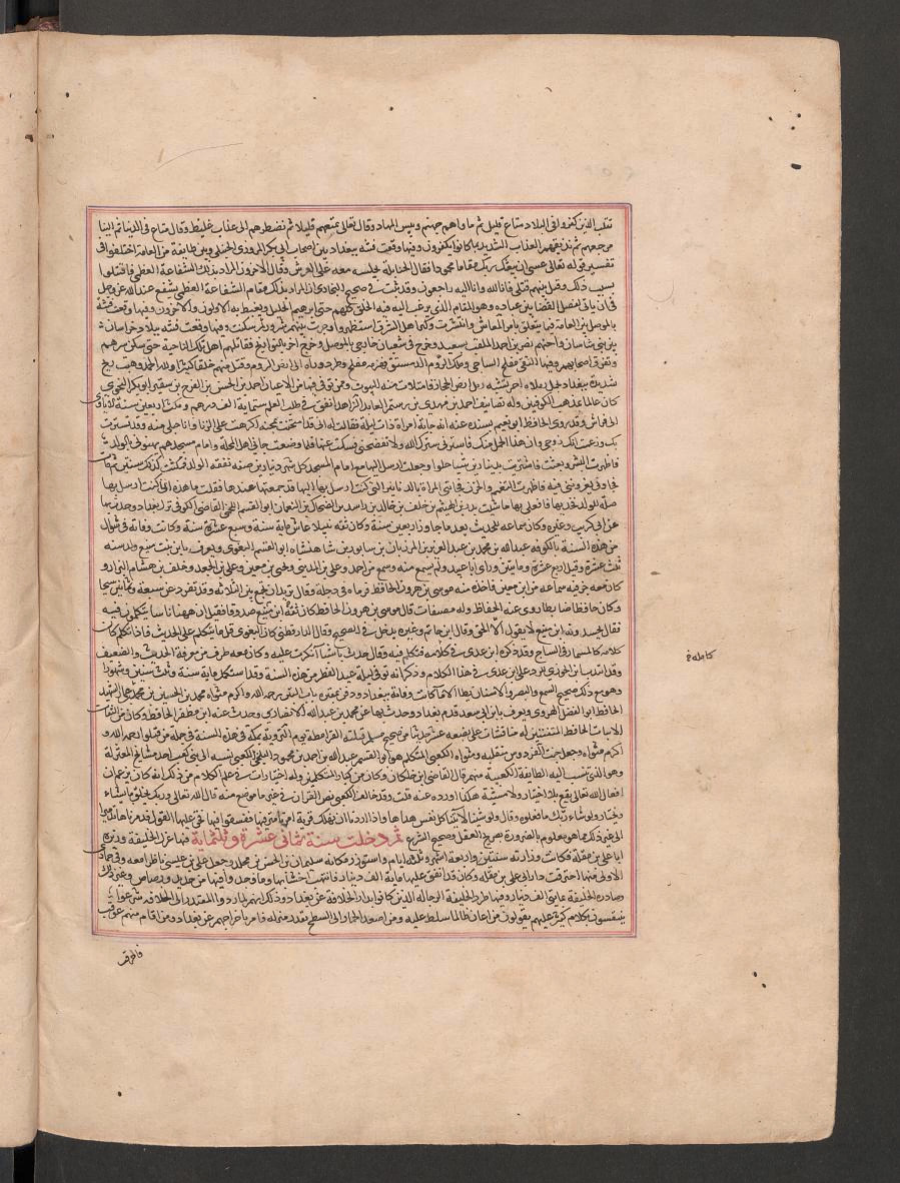 تقلب الذين كفروا في البلاد متاع قليل ثم ماواهم جهنم وبيس المهاد وقال تعالى نمتعهم قليلا ثم نضطرهم الى عذاب غليظ وقال متاع في الدنيا ثم الينا
مرجعهم ثم نذيقهم العذاب الشديد بما كانوا يكفرون وفيها وقعت فتنه ببغداد بين اصحاب ابي بكر المروذي الحنبلي وبين طايفة من العامة اختلفوا في
تفسير قوله تعالى عسى ان يبعثك ربك مقاما محمودا فقال الحنابلة يجلسه معه على العرش وقال الاخرون المراد بذلك الشفاعة العظمى فاقتتلوا
بسبب ذلك وقتل بينهم قتلى فانا لله وانا اليه راجعون وقد ثبت في صحيح البخاري ان المراد بذلك مقام الشفاعة العظمى يشفع عند الله عز وجل
في ان ياتي لفصل القضا بين عباده وهو المقام الذي يرغب اليه فيه الخلق كلهم حتى ابرهيم الخليل ويغبطه به الاولون والاخرون وفيها وقعت فتنة
بالموصل بين العامة فيما يتعلق بامر المعاش وانتشرت وكثر اهل الشر فيها واستظهروا وجرت بينهم شرور ثم سكنت وفيها وقعت فتنه ببلاد خراسان
بين بني ساسان واميرهم نصر بن احمد الملقب بسعيد وخرج في شعبان خارجي بالموصل وخرج اخر بالبوازيج فقاتلهم اهل تلك الناحية حتى سكن شرهم
وتفرق اصحابهم وفيها التقى مفلح الساجي وملك الروم الدمستق فهزمه مفلح وطرد وراه الى ارض الروم وقتل منهم خلقا كثيرا ولله الحمد وهبت ريح
شديدة ببغداد تحمل رملا احمر تشبه رمل ارض الحجاز فامتلات منه البيوت وممن توفي فيها من الاعيان احمد بن الحسن بن الفرج بن سقير ابو بكر النحوي
كان عالما بمذهب الكوفيين وله تصانيف احمد بن مهدي بن رستم العابد الزاهد انفق في طلب العلم ستماية الف درهم ومكث اربعين سنة لا ياوي
الى فراش وقد روى الحافظ ابو نعيم بسنده عنه انه جاته امراة ذات ليلة فقالت له اني قد امتحنت بمحنة اكرهت على الزنا وانا حبلى منه وقد تسترت
بك وزعمت انك زوجي وان هذا الحمل منك فاسترني سترك الله ولا تفضحني فسكت عنها فلما وضعت جاني اهل المحلة وامام مسجدهم يهنوني بالولد
فاظهرت البشر وبعثت فاشتريت بدينارين شيا حلوا وجعلت ارسل اليها مع امام المسجد كل شهر دينارين صفة نفقة الولد فمكثت كذلك سنتين ثم مات
فجاوني يعزونني منه فاظهرت التغمم والحزن فجاتني المراة بالدنانير التي كنت ارسل بها اليها قد جمعتها عندها فقلت لها هذه انما كنت ارسل بها
صلة للولد فخذيها فافعلي بها ما شيت بدر بن الهيثم بن خلف بن خالد بن راشد بن الضحاك بن النعمان ابو القاسم اللخمي القاضي الكوفي نزل بغداد وحدث بها
عن ابي كريب وغيره وكان سماعه للحديث بعد ما جاوز اربعين سنة وكان ثقة نبيلا عاش ماية سنة وسبع عشرة سنة وكانت وفاته في شوال
من هذه السنة بالكوفه عبد الله بن محمد بن عبد العزيز بن المرزبان بن سابور بن شاهنشاه ابو القسم البغوي ويعرف بابن بنت منيع ولد سنه
ثلث عشرة وقيل اربع عشرة ومايتين وراى ابا عبيد ولم يسمع منه وسمع من احمد وعلي بن المديني ويحيى بن معين وعلي بن الجعد وخلف بن هشام البزار و
كان معه جزء فيه سماعه من ابن معين فاخذه منه موسى بن هرون الحافظ فرماه في دجلة وقال تريد ان تجمع بين الثلاثه وقد تفرد عن سبعة وثمانين شيخا
وكان حافظا ضابطا روى عنه الحفاظ وله مصنفات قال موسى بن هرون الحافظ كان ثقة ابن منيع صدوقا فقيل ان ههنا ناسا يتكلمون فيه
فقال يحسدونه ابن منيع لا يقول الا الحق وقال ابن حاتم وغيره يدخل في الصحيح وقال الدارقطني كان البغوي قل ما يتكلم على الحديث فاذا تكلم كان
كلامه كالمسمار في الساج وقد ذكره ابن عدي في كامله فتكلم فيه وقال حدث باشيا انكرت عليه وكان معه طرف من معرفة الحديث والتصنيف
وقد انتدب ابن الجوزي للرد على ابن عدي في هذا الكلام وذكر انه توفي ليلة عيد الفطر من هذه السنة وقد استكمل ماية سنة وثلث سنين وشهورا
وهو مع ذلك صحيح السمع والبصر والاسنان يطا الاما كانت وفاته ببغداد ودفن بمقبرة باب التبن رحمه الله واكرم مثواه محمد بن الحسين بن محمد بن عمار الشهيد
الحافظ ابو الفضل الهروي ويعرف بابن ابي سعد قدم بغداد وحدث بها عن محمد بن عبد الله الانصاري وحدث عنه ابن مظفر الحافظ وكان من الثقات
الاثبات الحافظ المتقنين له مناقشات على بضعة عشر حديثا من صحيح مسلم قتلته القرامطة يوم التروية بمكة في هذه السنة في جملة من قتلوا رحمه الله و
اكرم مثواه وجعل جنت الفردوس منقلبه ومثواه الكعبي المتكلم هو ابو القسم عبد الله بن احمد بن محمود البلخي الكعبي نسبه الى بني كعب احد مشايخ المعتزلة
وهو الذي تنسب اليه الطايفة الكعبية منهم قال القاضي ابن خلكان وكان من كبار المتكلمين وله اختيارات في علم الكلام من ذلك انه كان يزعم ان
افعال الله تعالى تقع بلا اختيار ولا مشيئة هكذا اورده عنه قلت وقد خالف الكعبي نص القران في غير ما موضع منه قال الله تعالى وربك يخلق ما يشاء
ويختار ولو شاء ربك ما فعلوه وقال ولو شئنا لاتينا كل نفس هداها واذا اردنا ان نهلك قرية امرنا مترفيها ففسقوا فيها فحق عليها القول فدمرناها تدميرا
الى غير ذلك مما هو معلوم بالضرورة بصريح العقل وصحيح الشرع ثم دخلت سنة ثماني عشرة وثلثماية فيها عزل الخليفة وزيره
ابا علي بن مقلة فكانت وزارته سنتين واربعة اشهر وثلثة ايام واستوزر مكانه سليمان بن الحسن بن مخلد وجعل علي بن عيسى ناظرا معه وفي جمادى
الاولى منها احترقت دار ابي علي بن مقلة وكان قد انفق عليها ماية الف دينار فانتهب اخشابها وما وجد وا فيها من حديد ورصاص وغير ذلك
صادره الخليفة بمايتي الف دينار وفيها طرد الخليفة الرجالة الذين كانوا بدار الخلافة عن بغداد وذلك انهم لما ردوا المقتدر الى الخلافه شرعوا
ينفسون بكلام كثير عليهم يقولون من اعان ظالما سلط عليه ومن اصعد الحمار الى السطح يقدر ينزله فامر باخراجهم عن بغداد ومن اقام منهم عوقب
كامله
فاحرقت